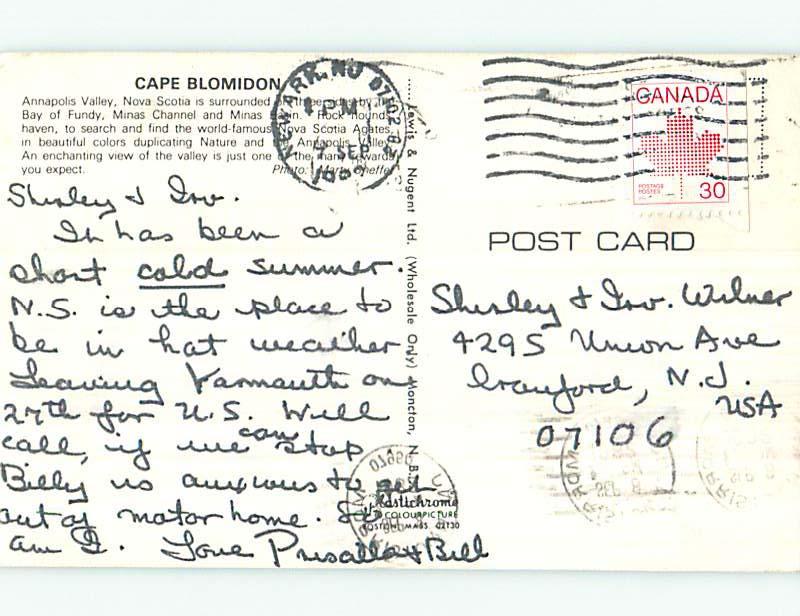 CAPE BLOMIDON
Annapolis Valley, Nova Scotia is surrounded on three sides by
Bay of Fundy, Minas Channel and Minas Basin. Rock hounds
haven, to search and find the world-famous Nova Scotia Agates,
in beautiful colors duplicating Nature and Annapolis Valley
An enchanting view of the valley is just one of the many rewards
you expect.
Photo:
Shirley & Irv.
It has been a
short cold summer.
N.S. is the place to
be in hot weather
Leaving Yarmouth on
27th for U.S. Will
call, if we can stop
Billy is anxious to get
out of motor home. So
am I. Love Priscilla & Bill
Lewis & Nugent Ltd. (Wholesale Only) Moncton, N.B.
Plastichrome
COLOURPICTURE
BOSTON MASS. 02130
NEWARK, NJ 07102
PM
SEP
CANADA
POSTAGE
POSTES
30
POST CARD
Shirley & Irv. Wilner
4295 Union Ave
Cranford, N.J.
USA
07106